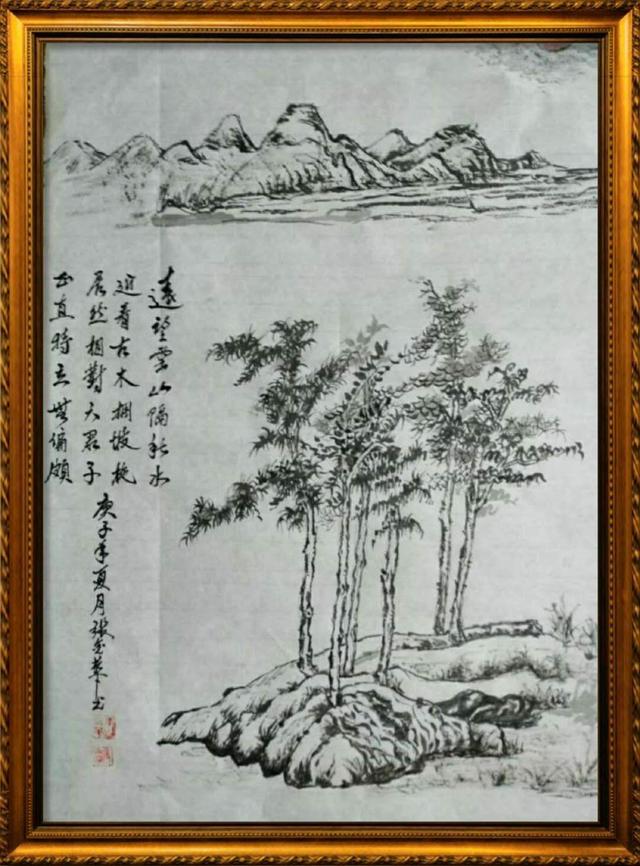 遠望雲山隔秋水
近看古木拥坡
居然相對六君子
正直特立無偏頗
庚子年夏月張